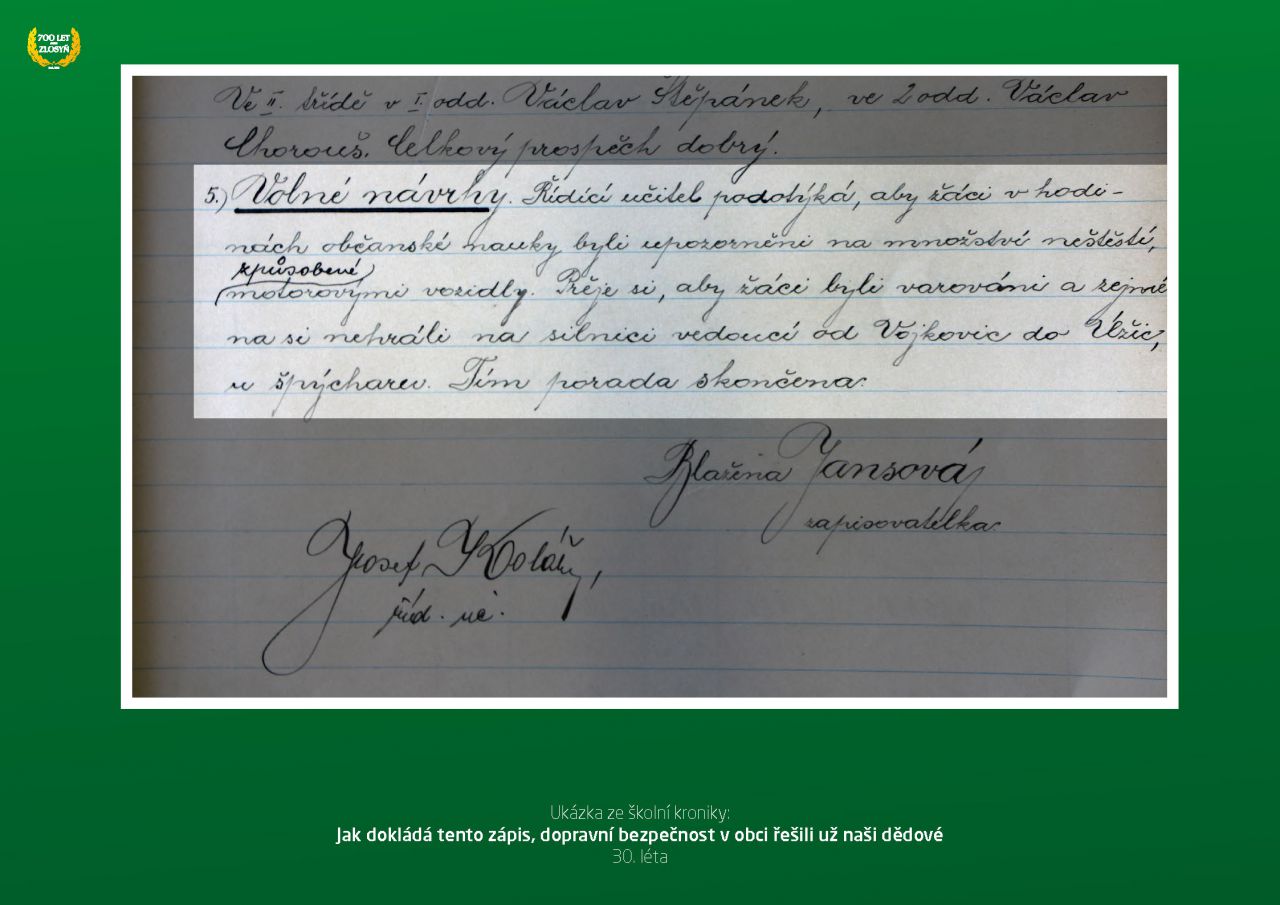 700 LET
ZLOSYŇ
Ve II. třídě v I. odd. Václav Štěpánek, ve 2 odd. Václav
Chorouš. Celkový prospěch dobrý.
5.) Volné návrhy. Řídící učitel podotýká, aby žáci v hodi-
nách občanské nauky byli upozorněni na množství neštěstí,
způsobené
motorovými vozidly. Přeje si, aby žáci byli varováni a zejmé
na si nehráli na silnici vedoucí od Vojkovic do Úžic,
u špýcharu. Tím porada skončena.
Blažena Jansová
zapisovatelka.
Josef Kolář,
říd. uč.
Ukázka ze školní kroniky:
Jak dokládá tento zápis, dopravní bezpečnost v obci řešili už naši dědové
30. léta